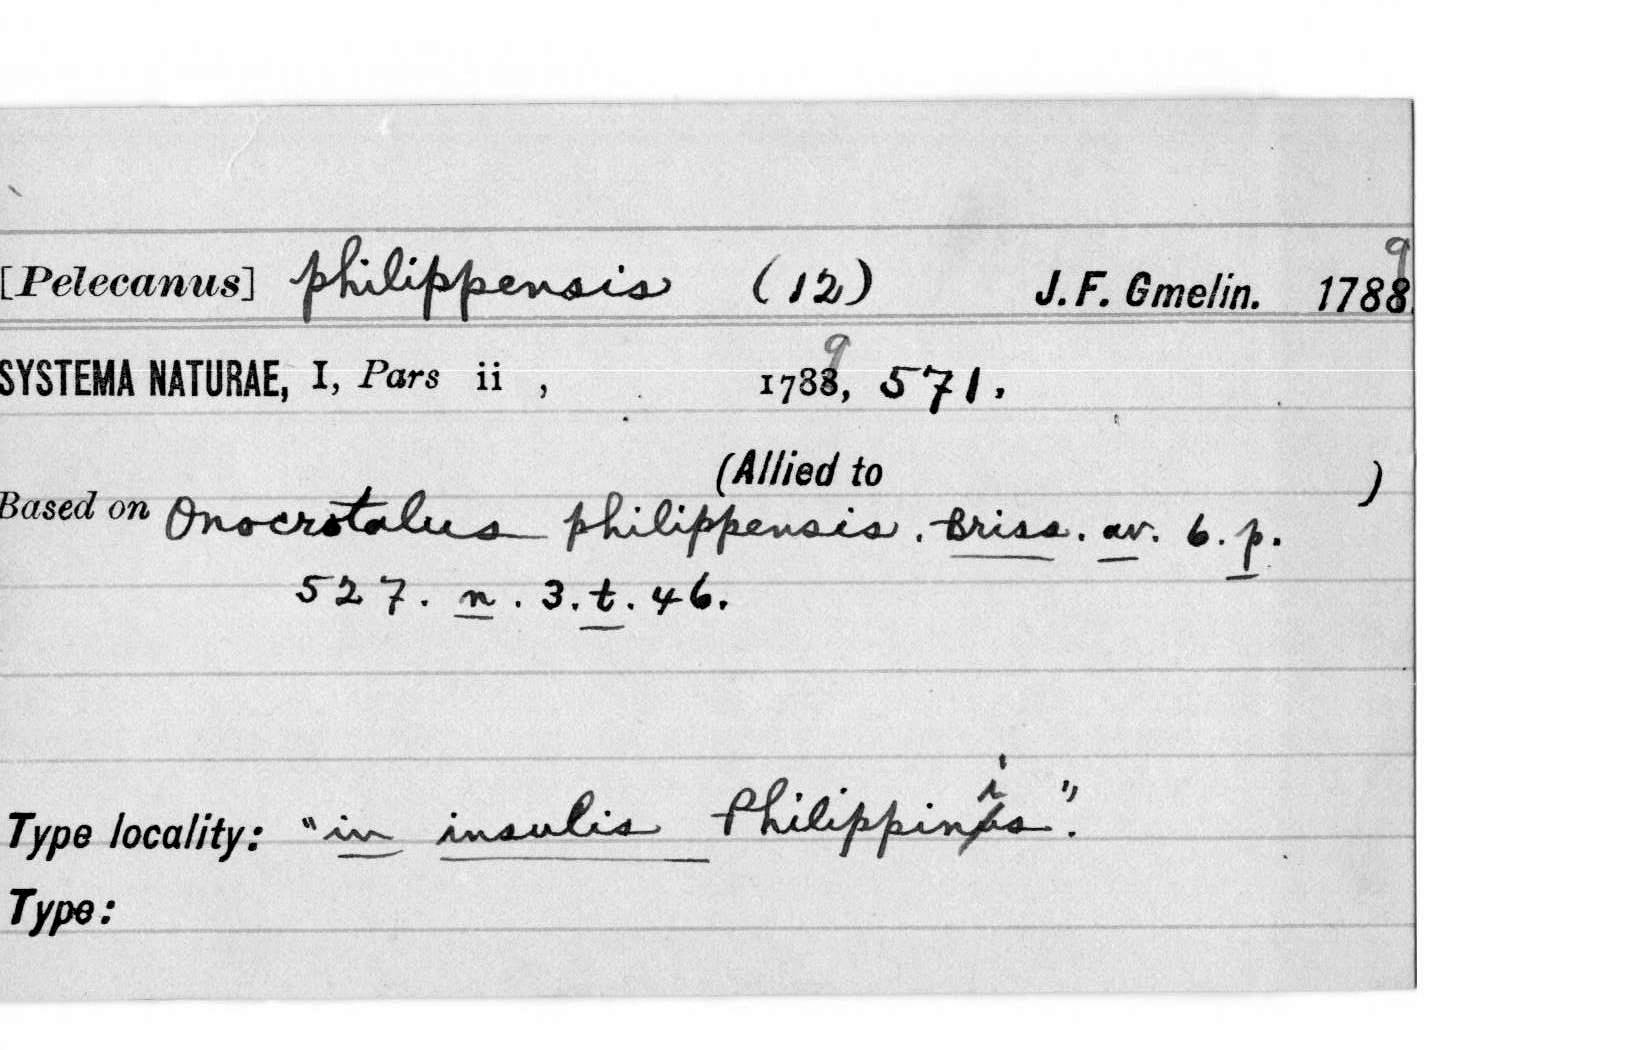 [Pelecanus] philippensis (12) J. F. Gmelin. 1789
SYSTEMA NATURAE, I, Pars ii , 1789, 571.
(Allied to )
Based on Onocrotalus philippensis. Briss. av. 6. p.
527. n. 3. t. 46.
Type locality: "in insulis Philippinis".
Type: